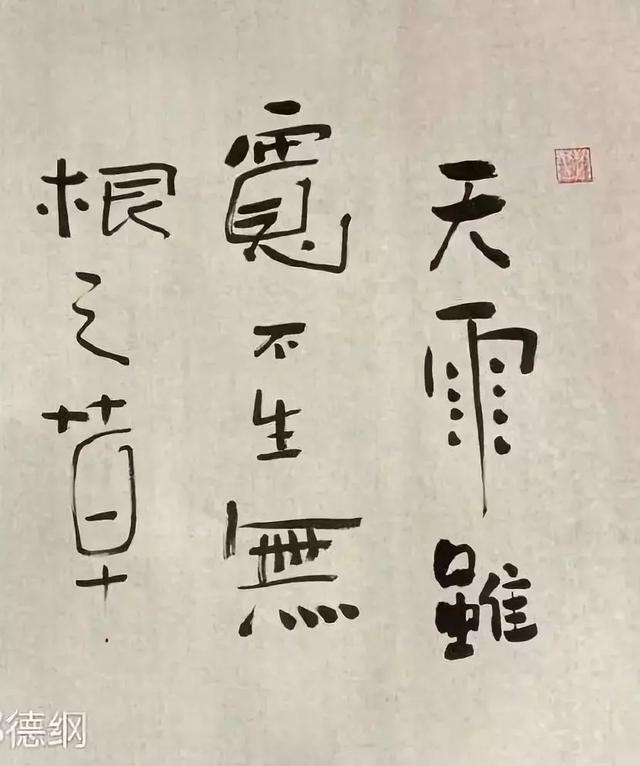 天雨雖
寬不生無
根之草
德纲